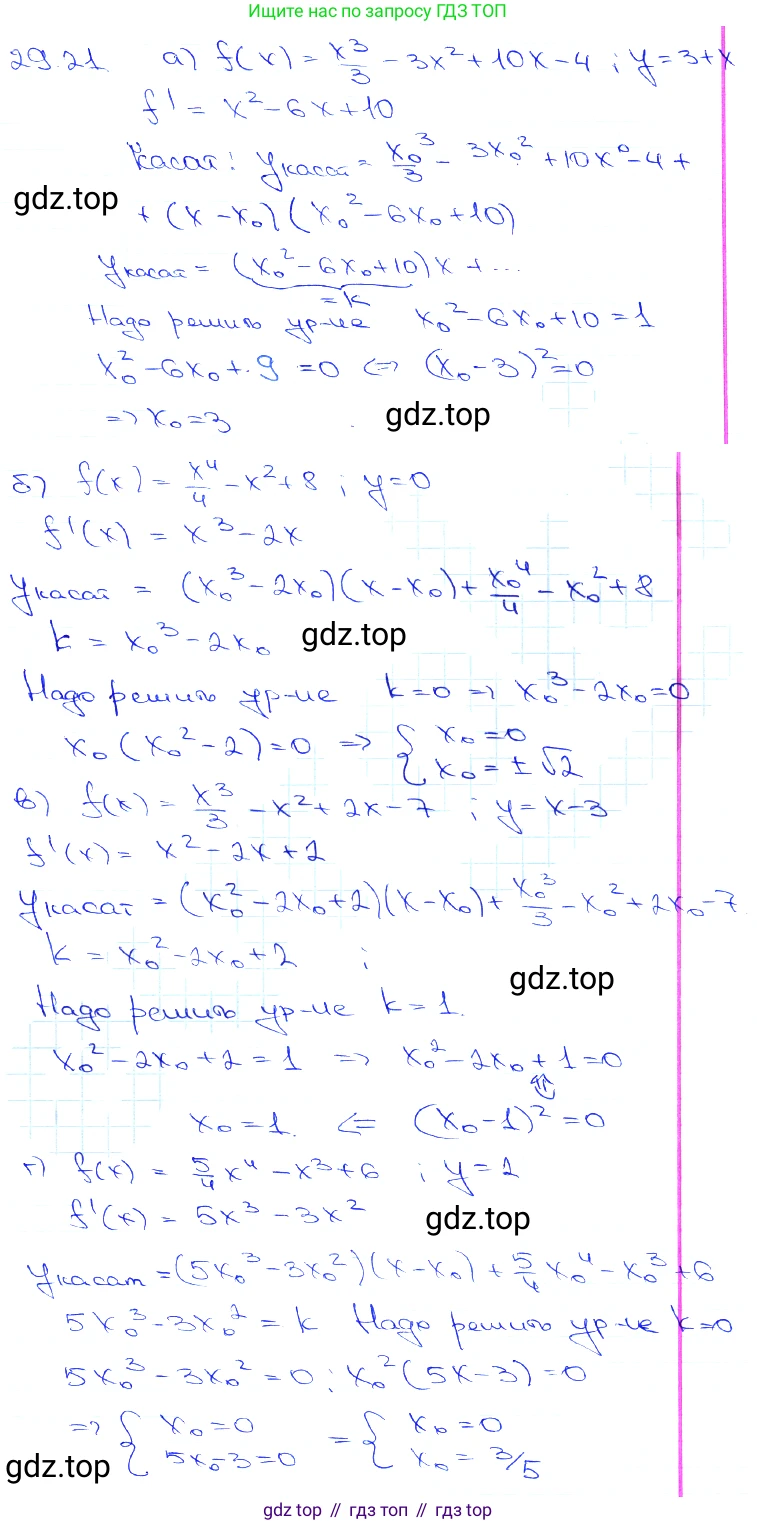 Ищите нас по запросу ГДЗ ТОП
29.21. а) f(x) = x³/3 - 3x² + 10x - 4 ; y = 3 + x
f' = x² - 6x + 10
Касат: y касат = x₀³/3 - 3x₀² + 10x⁰ - 4 +
gdz.top
+ (x - x₀)(x₀² - 6x₀ + 10)
y касат = (x₀² - 6x₀ + 10)x + ...
= k
Надо решить ур-ие x₀² - 6x₀ + 10 = 1
x₀² - 6x₀ + 9 = 0 <=> (x₀ - 3)² = 0
=> x₀ = 3
gdz.top
б) f(x) = x⁴/4 - x² + 8 ; y = 0
f'(x) = x³ - 2x
y касат = (x₀³ - 2x₀)(x - x₀) + x₀⁴/4 - x₀² + 8
k = x₀³ - 2x₀
gdz.top
Надо решить ур-ие k = 0 => x₀³ - 2x₀ = 0
x₀(x₀² - 2) = 0 => { x₀ = 0
x₀ = ± √2
в) f(x) = x³/3 - x² + 2x - 7 ; y = x - 3
f'(x) = x² - 2x + 2
y касат = (x₀² - 2x₀ + 2)(x - x₀) + x₀³/3 - x₀² + 2x₀ - 7
k = x₀² - 2x₀ + 2 ;
gdz.top
Надо решить ур-ие k = 1.
x₀² - 2x₀ + 2 = 1 => x₀² - 2x₀ + 1 = 0
x₀ = 1. <= (x₀ - 1)² = 0
г) f(x) = 5/4 x⁴ - x³ + 6 ; y = 2
f'(x) = 5x³ - 3x²
gdz.top
y касат = (5x₀³ - 3x₀²)(x - x₀) + 5/4 x₀⁴ - x₀³ + 6
5x₀³ - 3x₀² = k Надо решить ур-ие k = 0
5x₀³ - 3x₀² = 0 ; x₀²(5x - 3) = 0
=> { x₀ = 0 = { x₀ = 0
5x₀ - 3 = 0 x₀ = 3/5
gdz.top
gdz top // гдз топ // gdz top